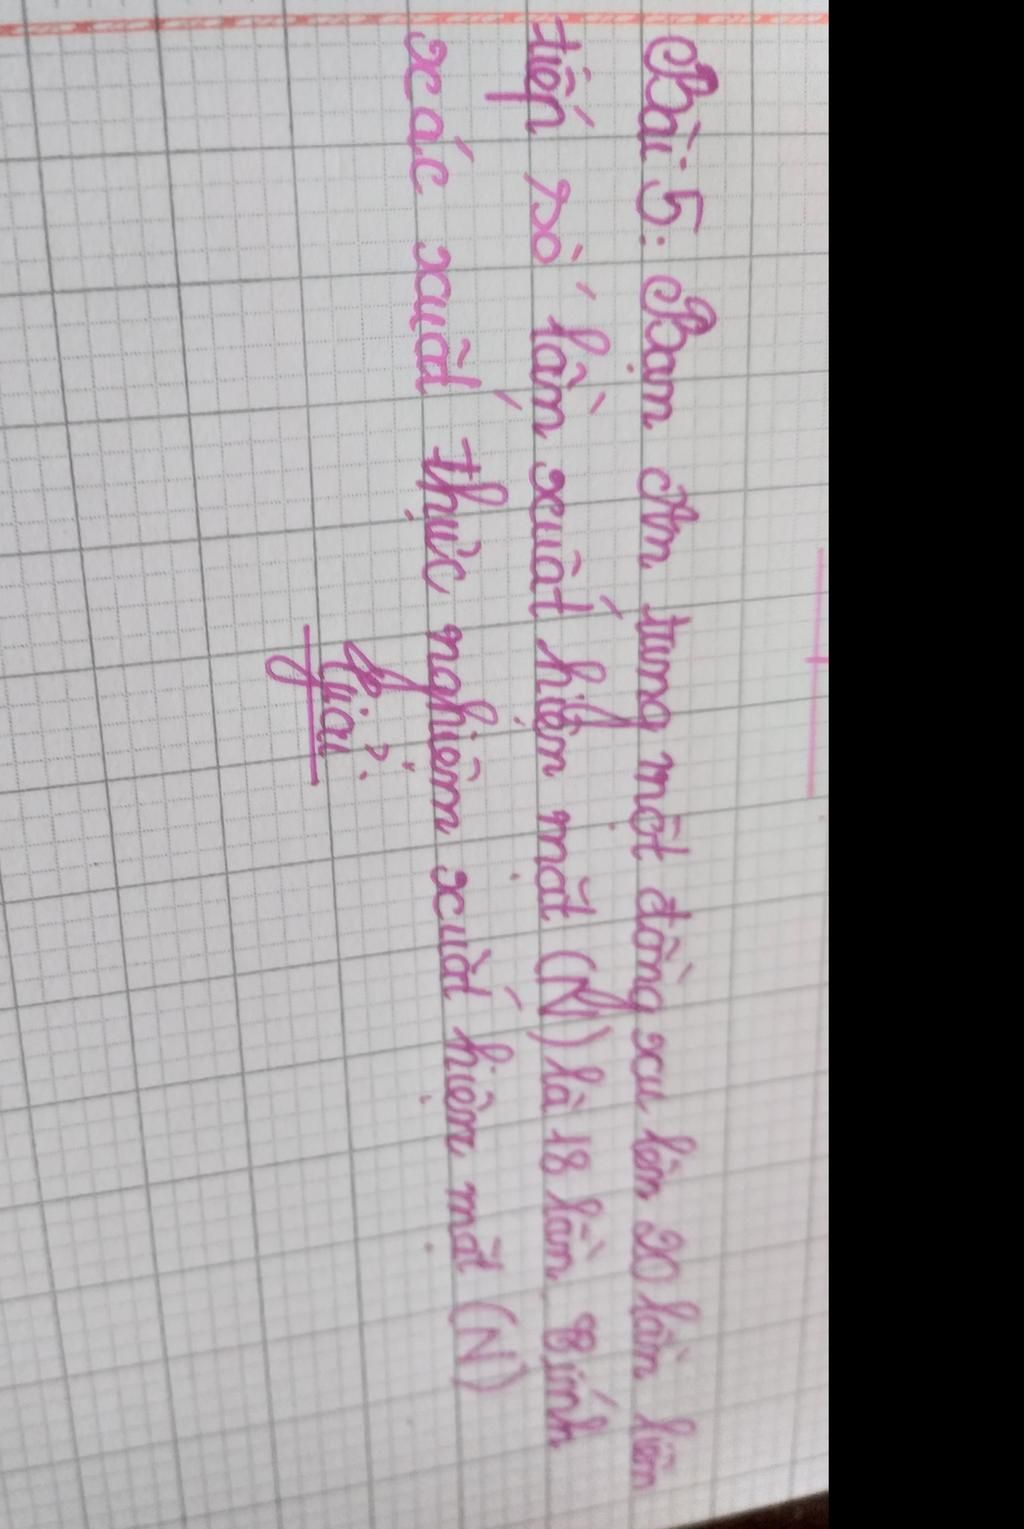 Bài 5: Bạn An tung một đồng xu lên 20 lần liên
tiếp số lần xuất hiện mặt (N) là 18 lần. Tính
xác xuất thực nghiệm xuất hiện mặt (N)
Giải: